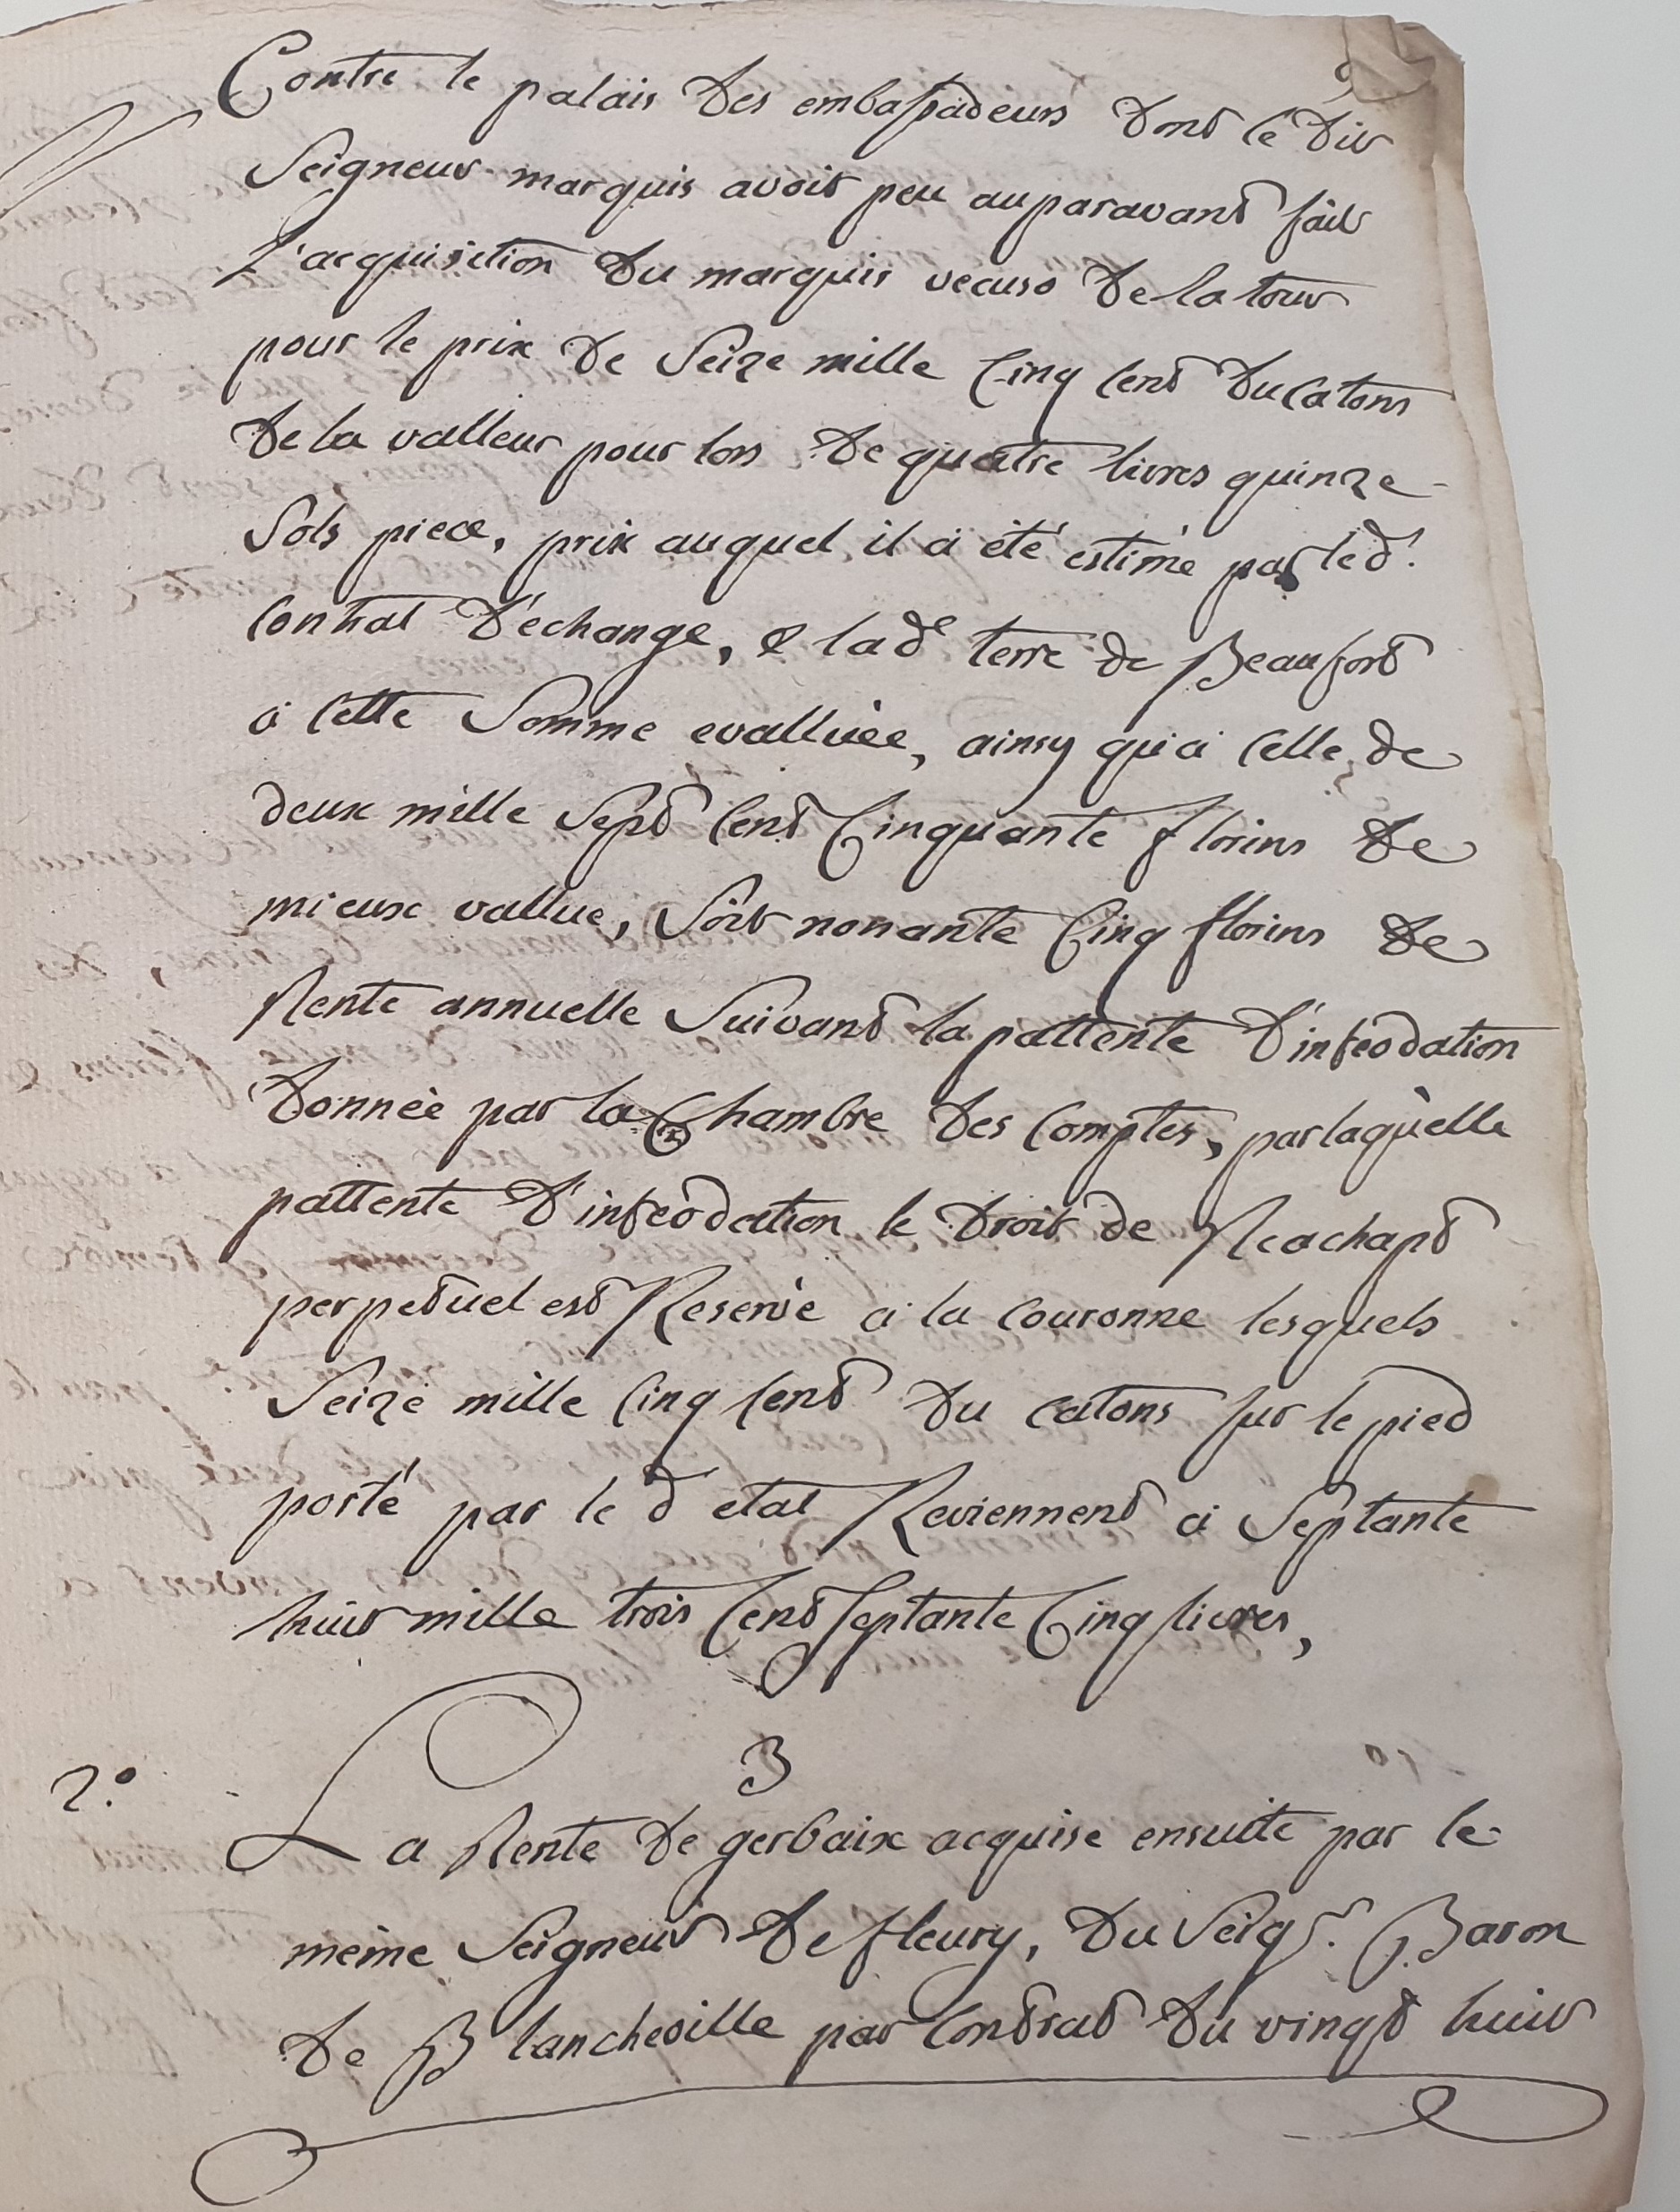 Contre le palais des embassadeurs dont le dit
Seigneur marquis avoit peu auparavant fait
L'acquisition du marquis vecuso de la tour
pour le prix de Seize mille Cinq Cent ducatons
de la valleur pour lors de quatre livres quinze
Sols piece, prix auquel il a été estimé par led.t
Contrat d'échange, & lad.e terre de Beaufort
a Cette Somme evalluée, ainsy qu'a Celle de
deux mille Sept Cent Cinquante florins de
mieux vallue, Soit nonante Cinq florins de
Rente annuelle Suivant la pattente d'infeodation
donnée par la Chambre des Comptes, par laquelle
pattente d'infeodation le droit de Reachapt
perpetuel est Reservé a la Couronne lesquels
Seize mille Cinq Cent du catons Sur le pied
porté par le d etat Reviennent a Septante
huit mille trois Cent Septante Cinq livres,
3
2.° La Rente de gerbaix acquise ensuite par le
même Seigneur de fleury, du Seigr. Baron
de Blancheville par Contrat du vingt huit